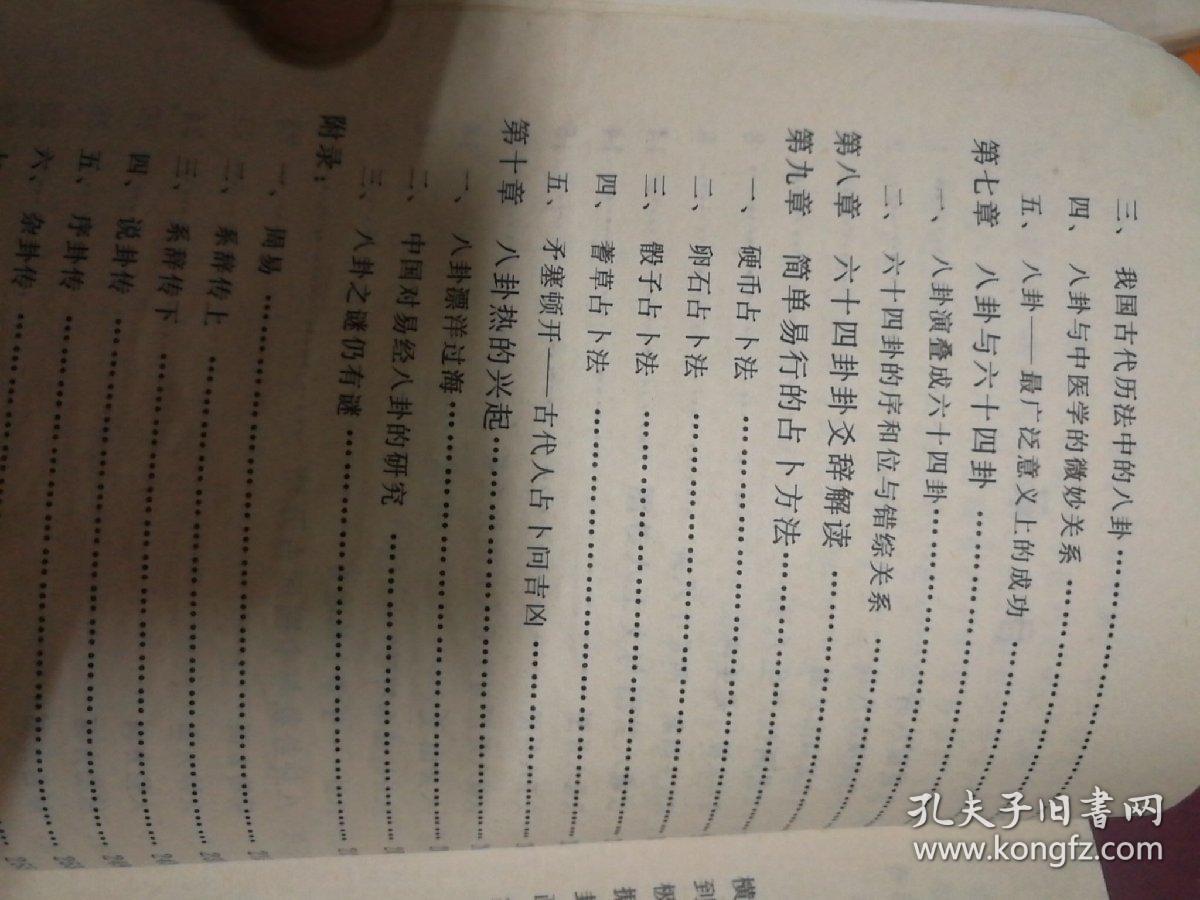 三、我国古代历法中的八卦
四、八卦与中医学的微妙关系
五、八卦——最广泛意义上的成功
第七章 八卦与六十四卦
一、八卦演叠成六十四卦
二、六十四卦的序和位与错综关系
第八章 六十四卦卦爻辞解读
第九章 简单易行的占卜方法
一、硬币占卜法
二、卵石占卜法
三、骰子占卜法
四、蓍草占卜法
五、矛塞顿开——古代人占卜问吉凶
第十章 八卦热的兴起
一、八卦漂洋过海
二、中国对易经八卦的研究
三、八卦之谜仍有谜
附录：
一、周易
二、系辞传上
三、系辞传下
四、说卦传
五、序卦传
六、杂卦传
孔夫子旧书网
www.kongfz.com